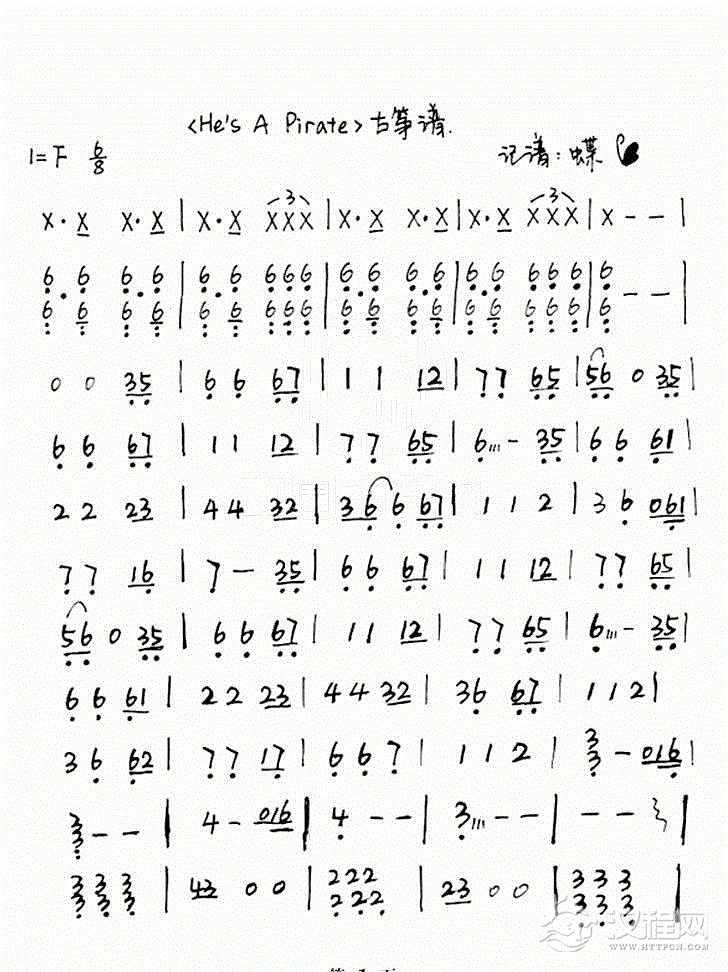 <He's A Pirate>古筝谱.
1=F 6/8
记谱:蝶
x·x x·x | x·x xxx | x·x x·x | x·x xxx | x - - |
6·6 6·6 | 6·6 666 | 6·6 6·6 | 6·6 666 | 6 - - |
6·6 6·6 | 6·6 666 | 6·6 6·6 | 6·6 666 | 6
0 0 35 | 6 6 67 | 1 1 12 | 7 7 65 | 56 0 35 |
6 6 67 | 1 1 12 | 7 7 65 | 6 - 35 | 6 6 61 |
2 2 23 | 4 4 32 | 3 6 6 67 | 1 1 2 | 3 6 061 |
7 7 16 | 7 - 35 | 6 6 67 | 1 1 12 | 7 7 65 |
56 0 35 | 6 6 67 | 1 1 12 | 7 7 65 | 6 - 35 |
6 6 61 | 2 2 23 | 4 4 32 | 36 67 | 1 1 2 |
3 6 62 | 7 7 17 | 6 6 7 | 1 1 2 | 3 3 3 - 016 |
3 3 3 - - | 4 - 016 | 4 - - | 3 - - | - - |
3 3 3 | 43 0 0 | 2 2 2 | 23 0 0 | 3 3 3 |
3 3 3 | 2 2 2 | 3 3 3
汉程网
HTTPCN.COM